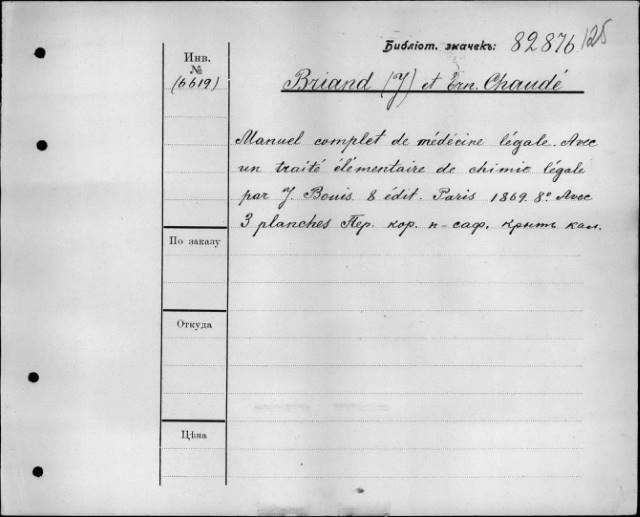 Библіот. значекъ: 82876/125
Инв.
№
(6619)
Briand (J) et Ern. Chaudé
Manuel complet de médécine légale. Avec
un traité élémentaire de chimie légale
par J. Bouis. 8 édit. Paris 1869. 8º Avec
3 planches Пер. кор. н-саф. крыт. кал.
По заказу
Откуда
Цѣна